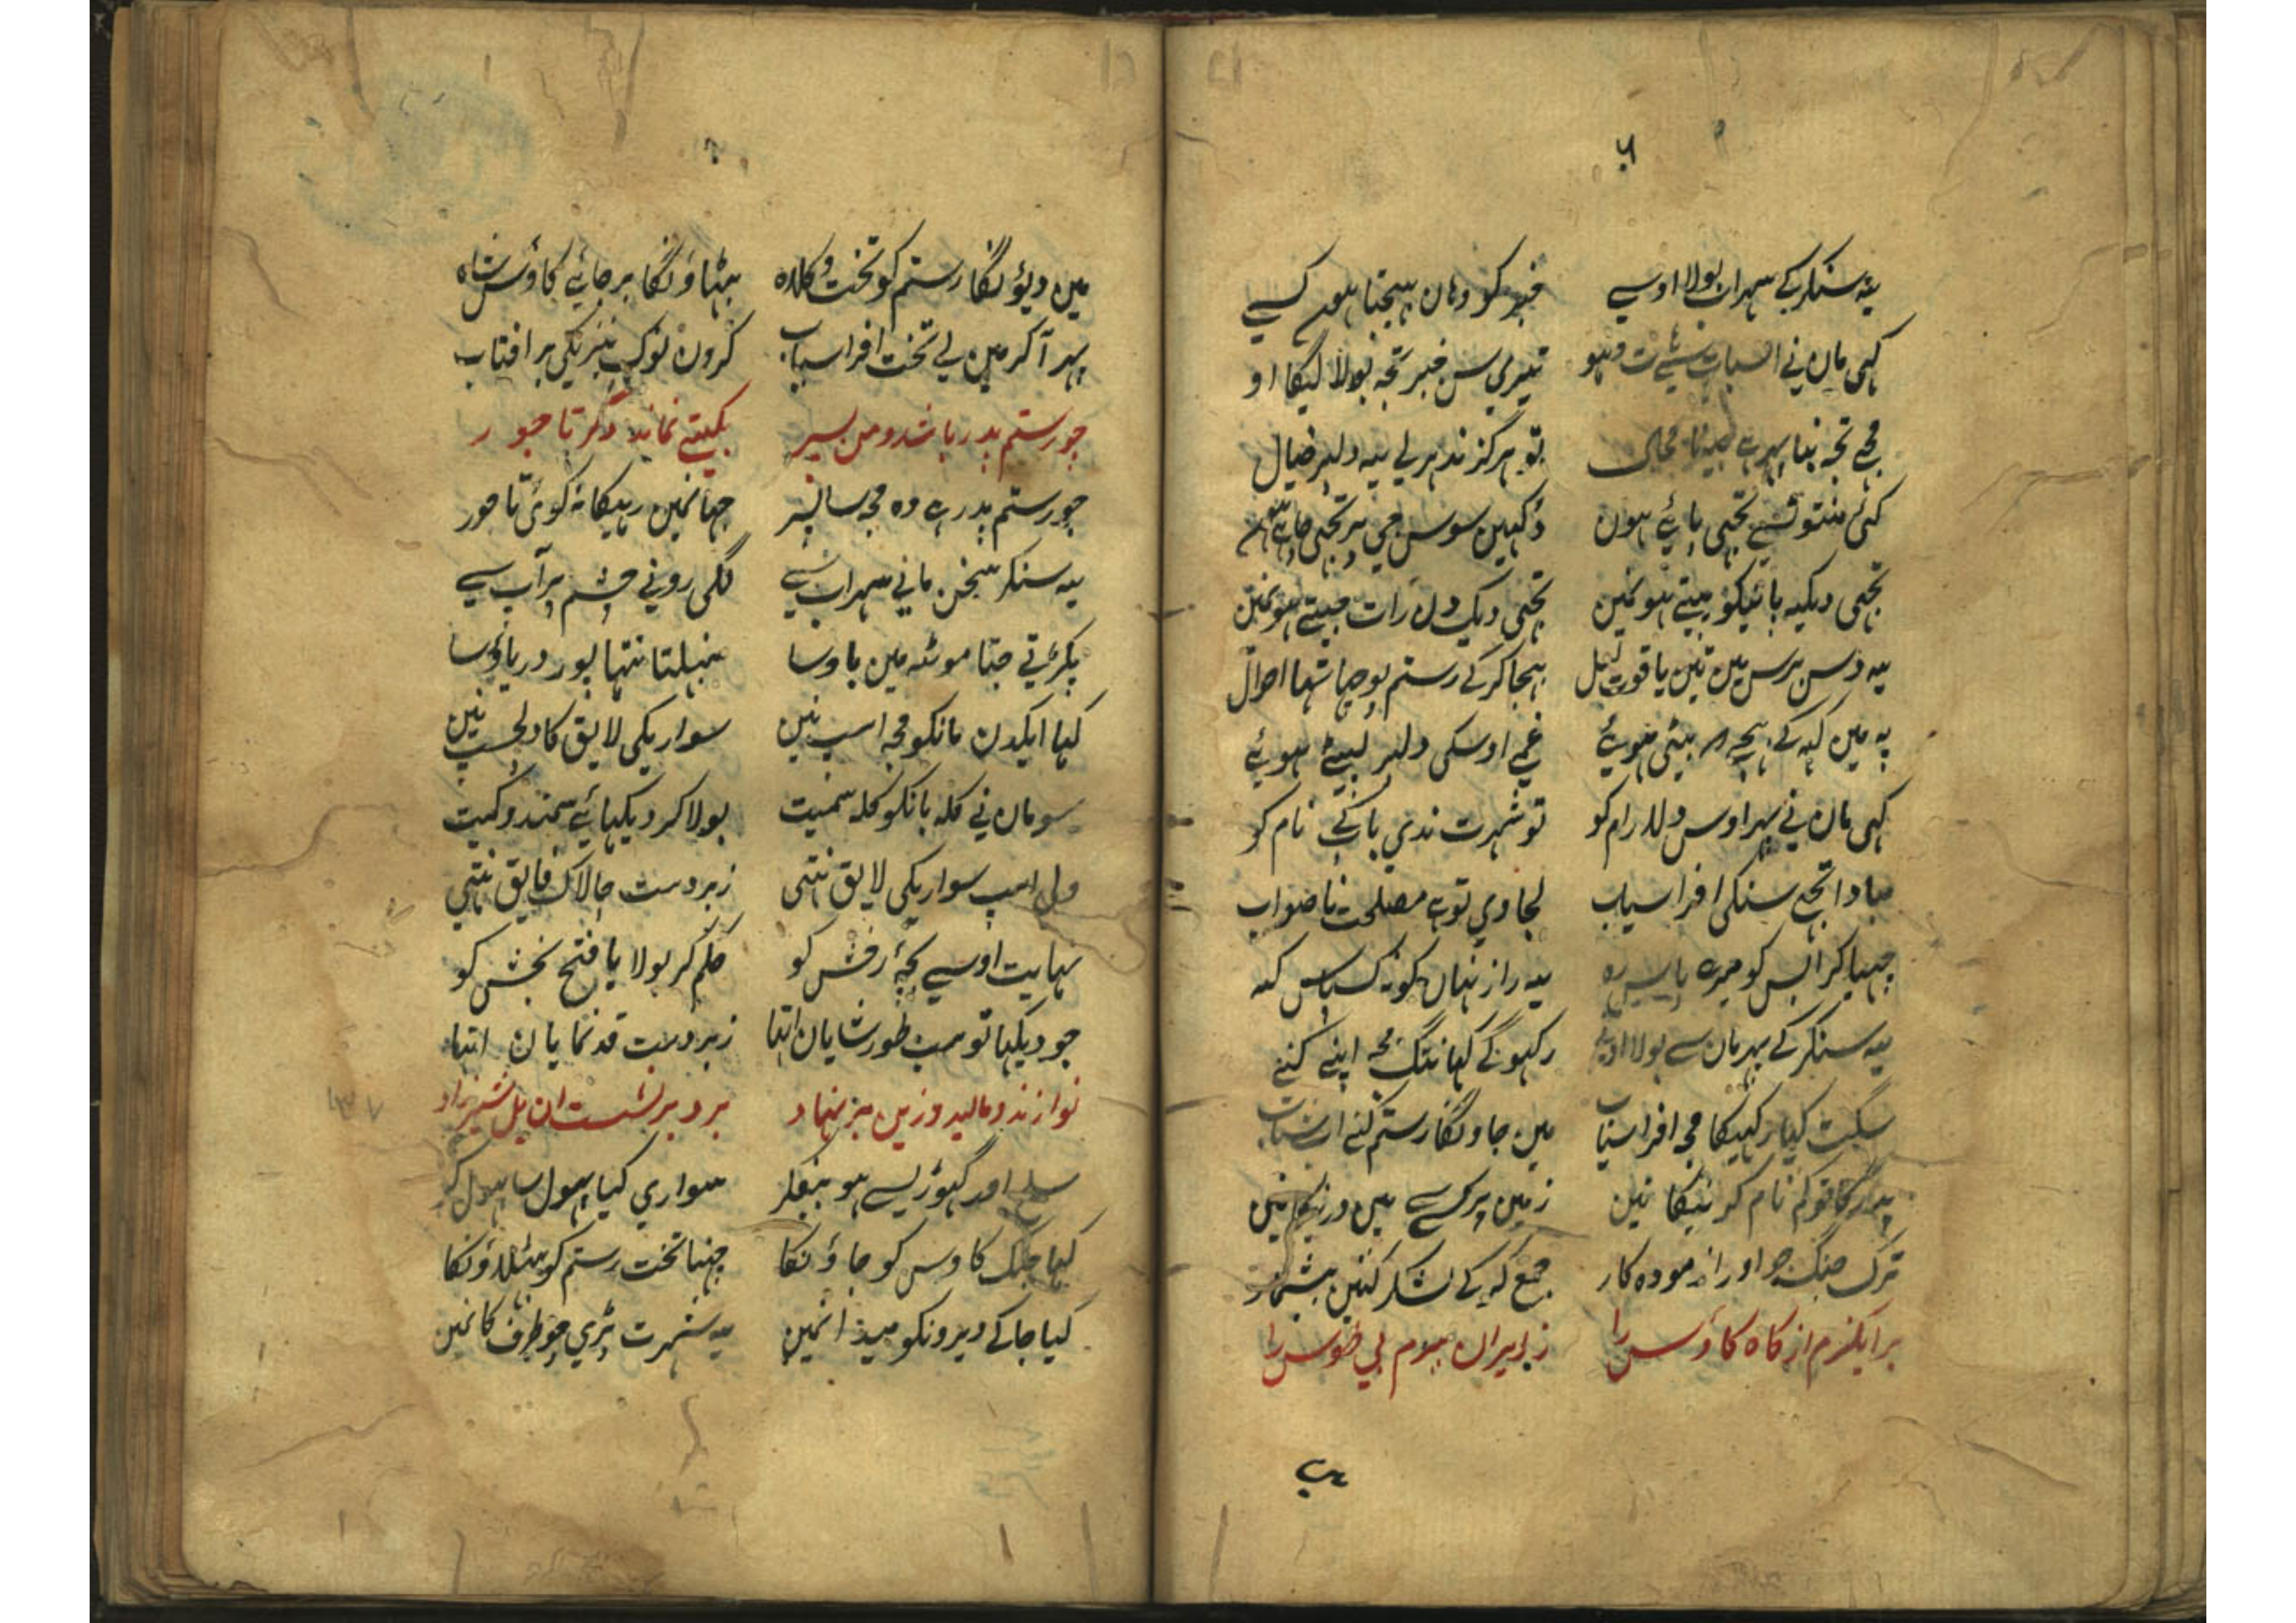 یہ سنکر کے سہراب بولا اوسے خبر کو وہان بہیجتا ہون کسے
کہی مان نی تیری سن خبر تجہ بولا لیگا او
مجے تجہ بنا تو ہرگز ندہر لے یہ دلپر خیال
کئی منتون سے تجہی پائے ہون
تجہی دیکہ باتیکو جیتے ہو نمین تجہی دیک دن رات جیتے ہو نمین
یہ دس برس مین تین یاقوت لعل بہجا کر کے رستم پوچہا تہا احوال
یہ مین کہہ کے بیٹی ہوئے غمے اوسکی دلپر لیئے ہوئے
کہی مان نے پہر اوس دلارام کو تو شہرت ندی باپ کے نام کو
مبادا تجہے سنکے افراسیاب لجاوی تو ہے مصلحت ناصواب
چہپا کر اپس کو میرے پاس رہ یہ راز نہان کو نہ کس پاس کہہ
یہ سنکر کے پہر مان سے بولا رکہو گے کہانتگ مجہ اپنے کنے
سگت کیا رکہیگا مجہ افراسیاب مین جاونگا رستم کنے
نام کر نیکا نین زمین پر کسے مین
ترک جنگ جو اور ازمودہ کار جمع کر کے لشکر کتین بیشمار
برانگیزم از گاہ کاوس را ز ایران ببرم پی طوس را
مین دیونگا رستم کو تخت و کلاہ بہٹاونگا بر جائے کاوس شاہ
پہر آ کر مین لے تخت افراسیاب کرون نوک نیزیکی بر افتاب
چو رستم پدر باشد و من پسر بگیتے نماند دگر تاجور
جو رستم پدر ہے وہ مجہ سا پسر جہانمین رہیگا نہ کوئی تاجور
یہ سنکر سخن مانی سہراب سے لگی رونے چشم پر آب سے
پکڑتے جتا موٹہ مین باوسا سنبہلتا نتہا پور دریاوسا
کہا ایکدن مانکو مجہ اسپ نین سواریکی لایق کا دلچسپ نین
سو مان نی گلہ بانکو گلہ سمیت بولا کر دیکہائے سمند و کمیت
ولی اسپ سواریکی لایق نتہی زبردست چالاک فایق نتہی
نہایت اوسے بچہ رخش کو حکم کر بولا یا فتح بخش کو
جو دیکہا تو سب طور شایان اتہا زبردست قد نمایان اتہا
نوازند و مالید و زین بر نہاد برو بر نشست ان یل شیرزاد
سلح اور گہوڑیسے ہو بیفکر سواری کیا
کہا جنگ کاوس کو جاونگا چہنا تخت رستم کو بہٹلاونگا
کیا جا کے دیرونکو میدانمین یہ شہرت پڑی چو طرف کانمین